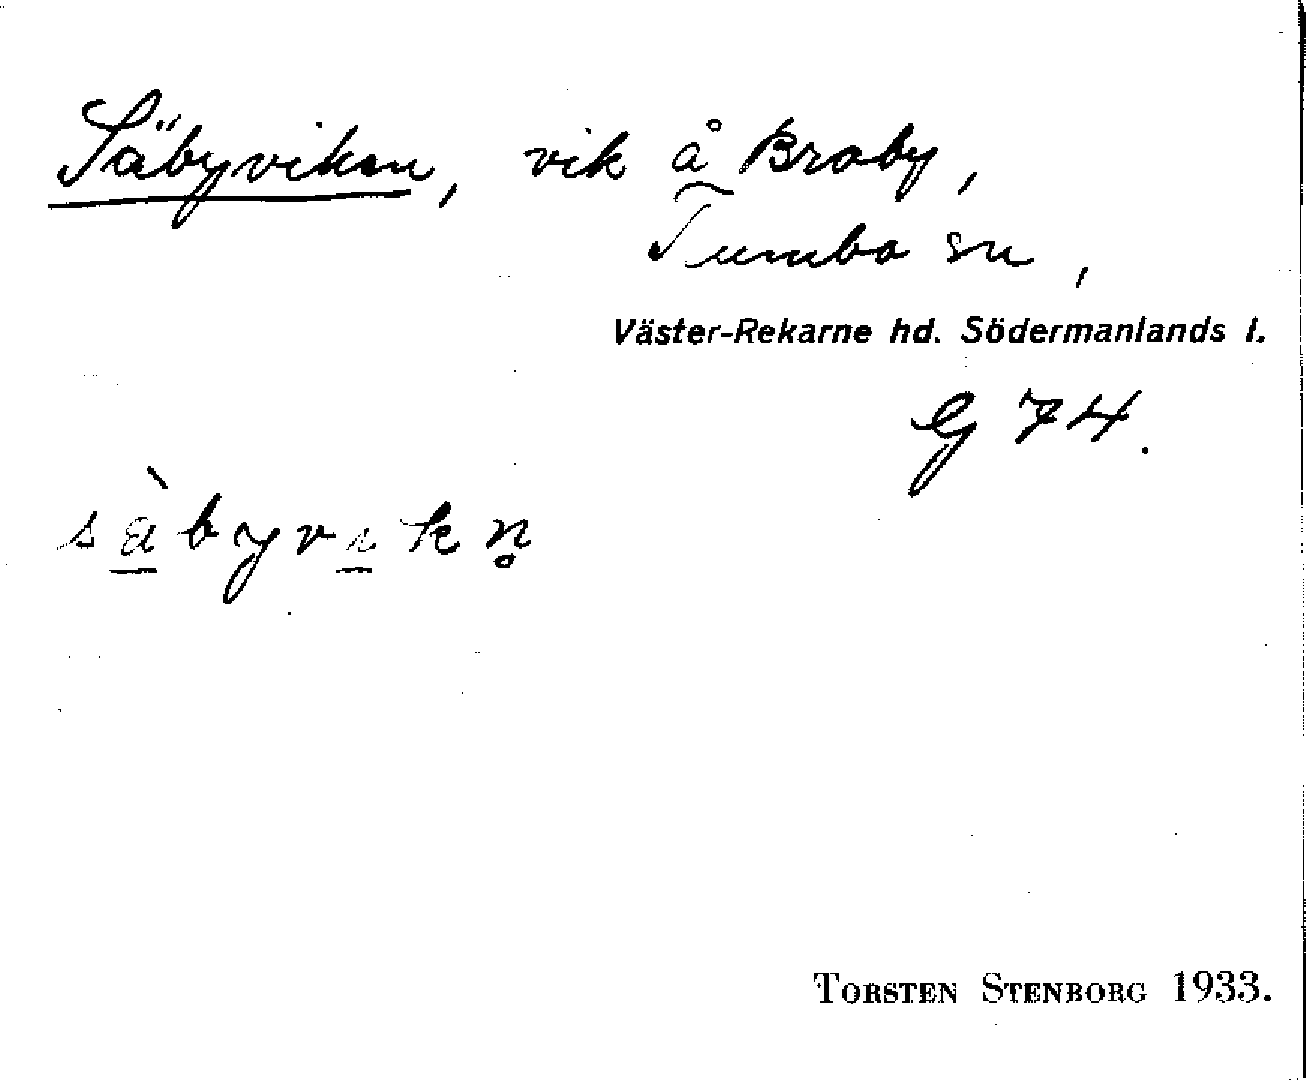 Säbyviken, vik å Broby,
Tumba sn,
Väster-Rekarne hd. Södermanlands l.
G 74.
sä̀byvikn̥
TORSTEN STENBORG 1933.